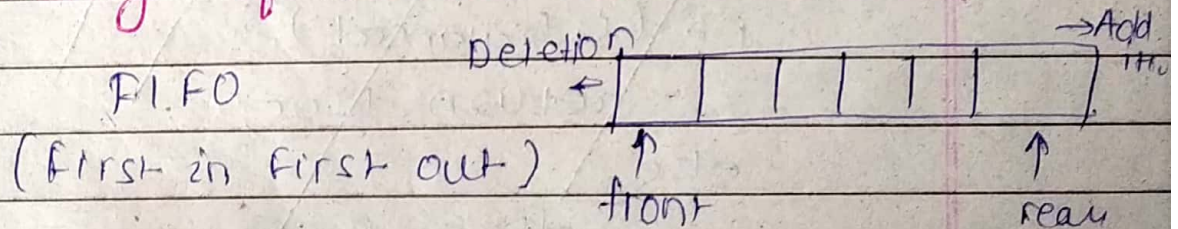 Deletion →Add
FI.FO ←
(first in first out) ↑ ↑
front rear